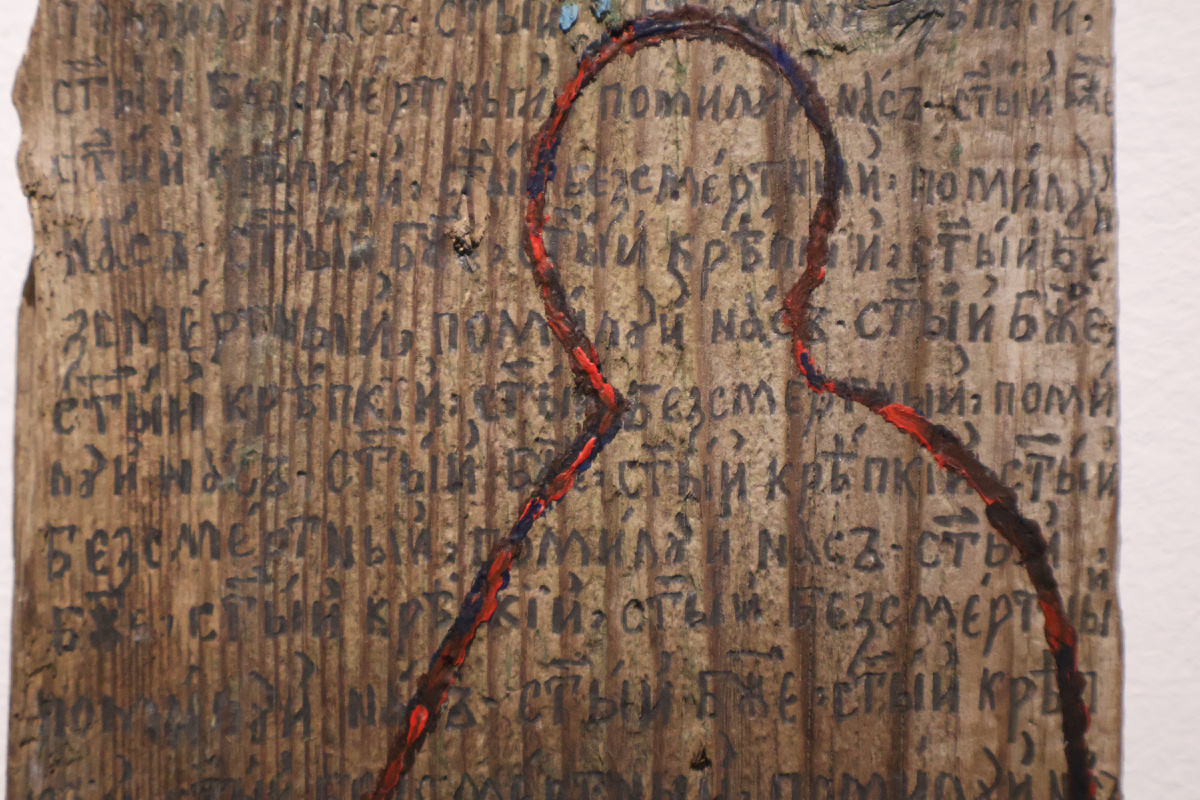 поми́лꙋй на́съ· ст҃ы́й крѣ́пкїй,
ст҃ы́й безсме́ртный, поми́лꙋй на́съ· ст҃ы́й бж҃е
ст҃ы́й крѣ́пкїй, ст҃ы́й безсме́ртный, поми́лꙋй
на́съ· ст҃ы́й бж҃е, ст҃ы́й крѣ́пкїй, ст҃ы́й бе
зсме́ртный, поми́лꙋй на́съ· ст҃ы́й бж҃е,
ст҃ы́й крѣ́пкїй, ст҃ы́й безсме́ртный, поми́
лꙋй на́съ· ст҃ы́й бж҃е, ст҃ы́й крѣ́пкїй, ст҃ы́й
безсме́ртный, поми́лꙋй на́съ· ст҃ы́й
бж҃е, ст҃ы́й крѣ́пкїй, ст҃ы́й безсме́ртный
поми́лꙋй на́съ· ст҃ы́й бж҃е, ст҃ы́й крѣп
ст҃ы́й безсме́ртный, поми́лꙋй на́съ